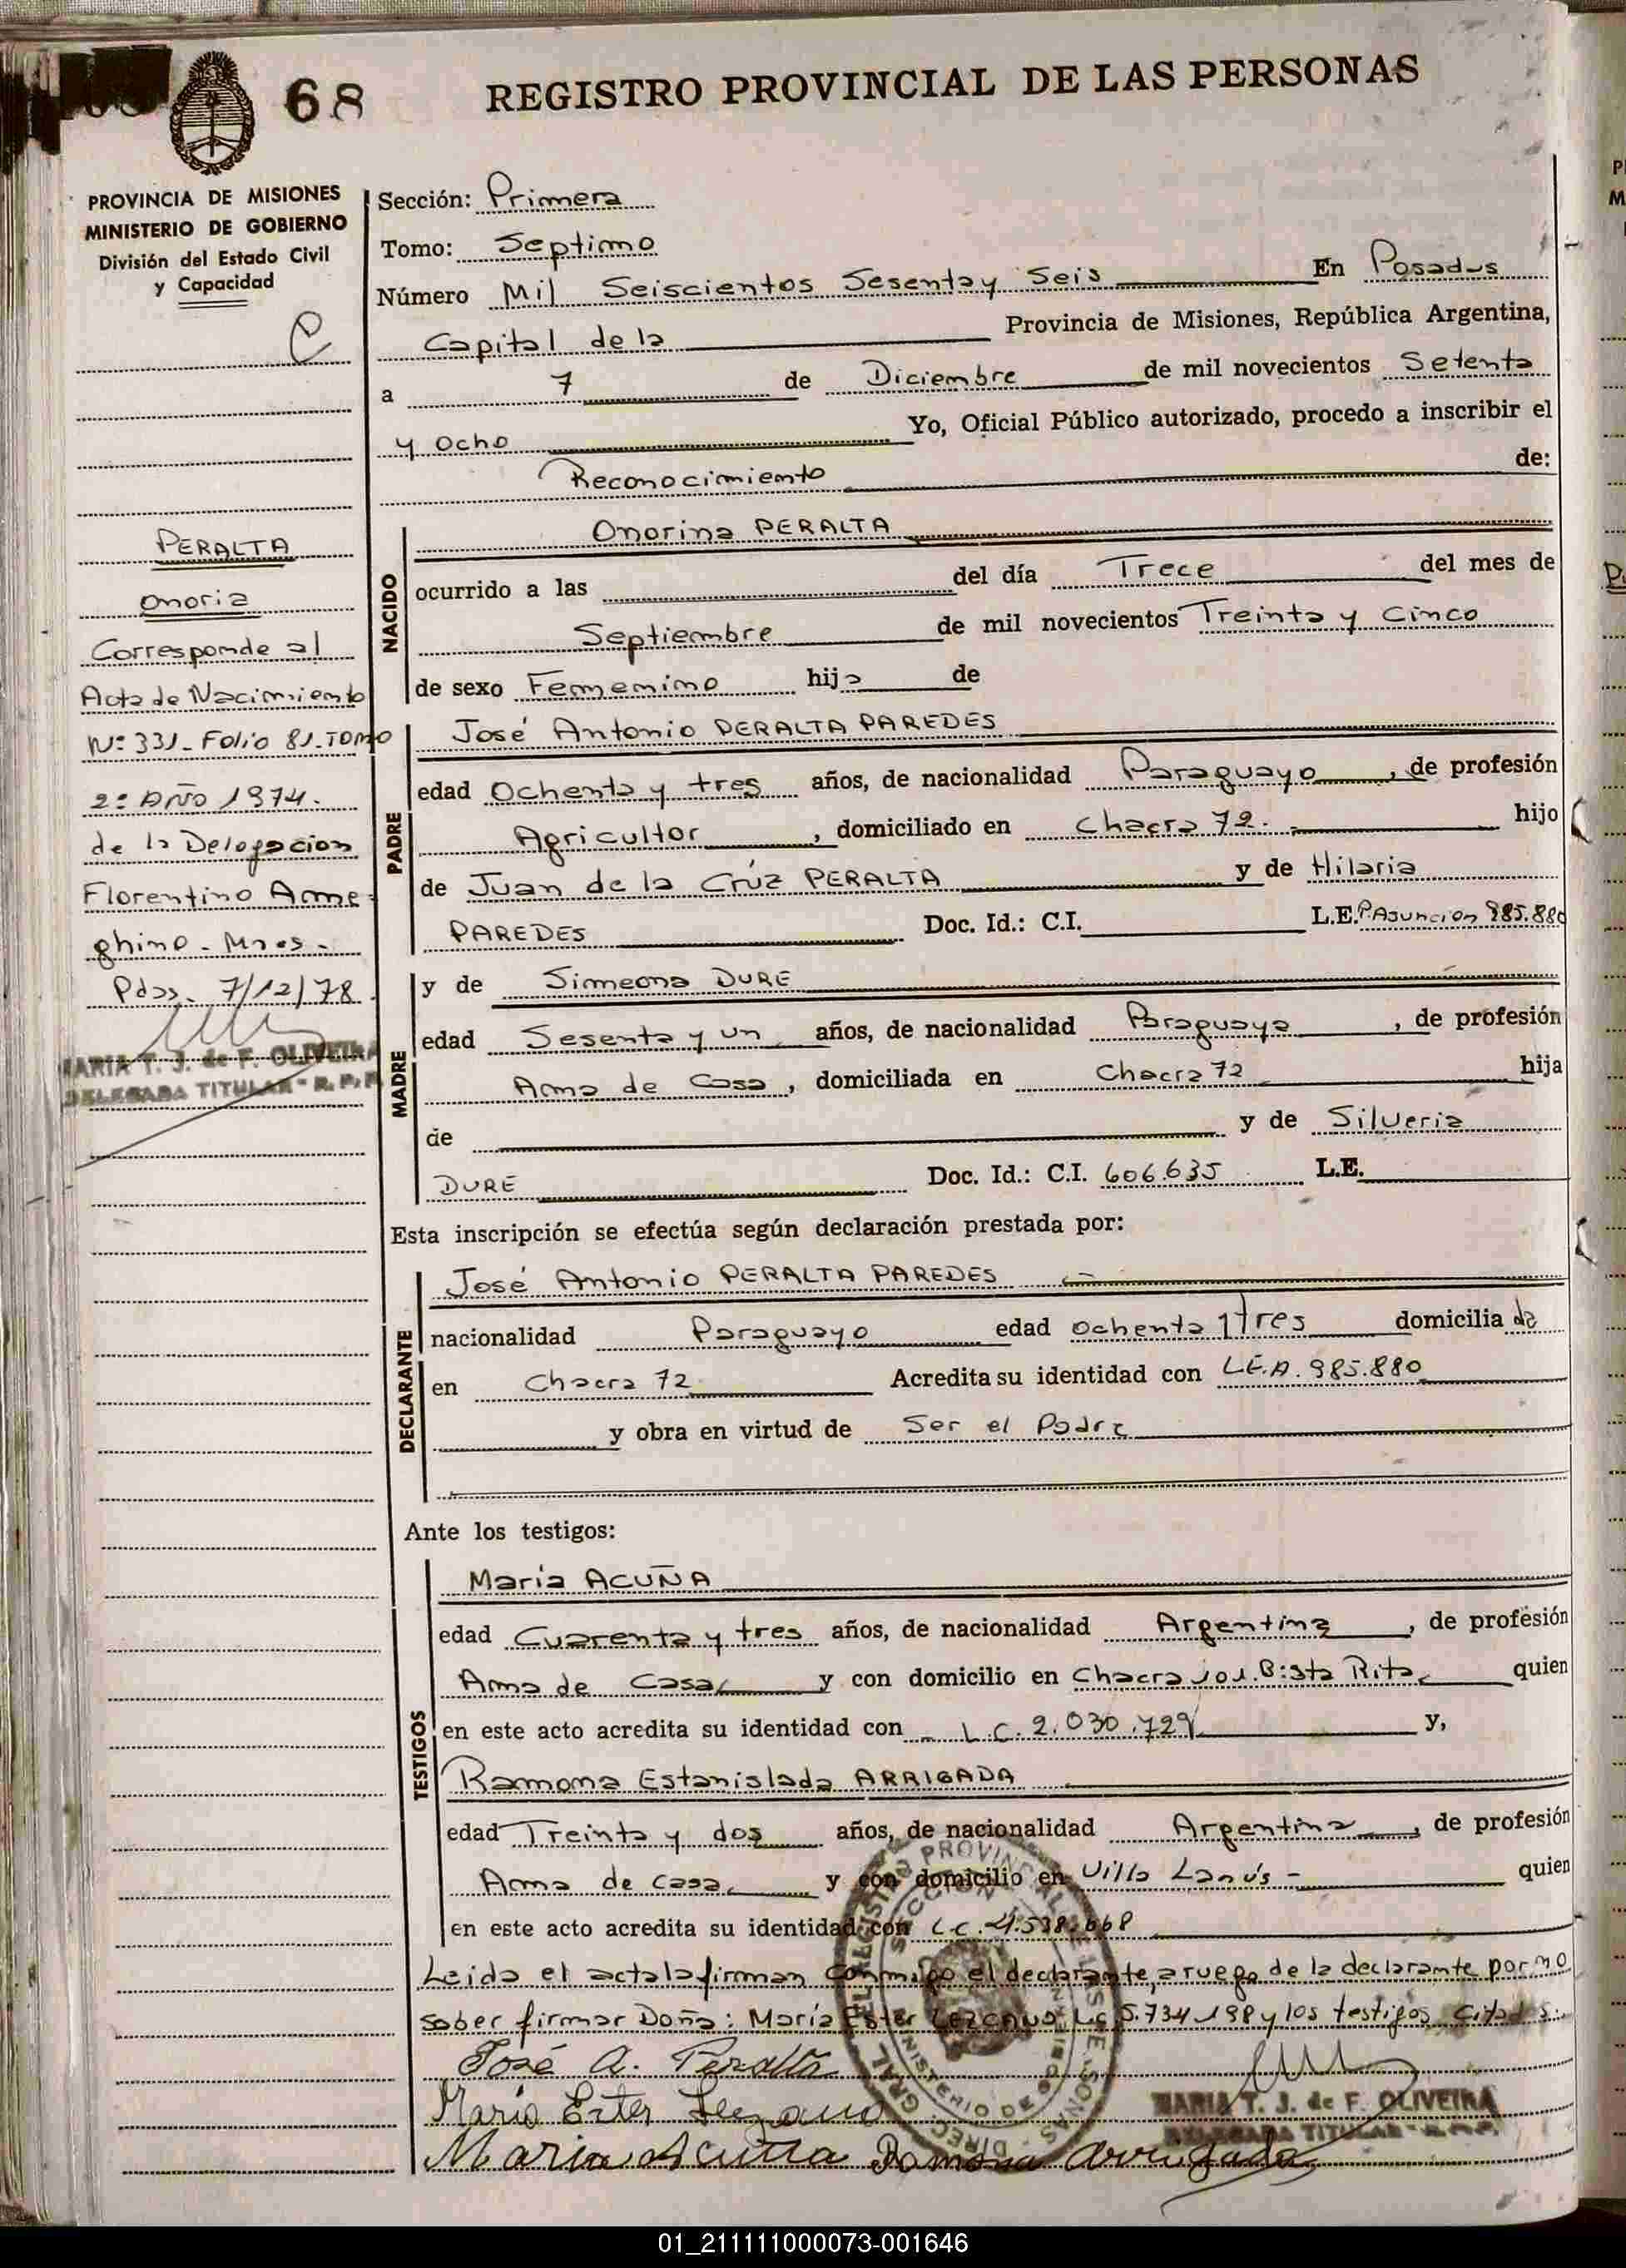 68
REGISTRO PROVINCIAL DE LAS PERSONAS
PROVINCIA DE MISIONES
MINISTERIO DE GOBIERNO
División del Estado Civil
y Capacidad
PERALTA
Onoria
Corresponde al
Acta de Nacimiento
Nº 331_ Folio 81_TOMO
2º AÑO 1974.
de la Delegacion
Florentino Ame-
ghino - Mnes -
Pdas. 7/12/78
MARIA T. J. de F. OLIVEIRA
DELEGADA TITULAR - R. P. P.
Sección: Primera
Tomo: Septimo
Número Mil Seiscientos Sesenta y Seis En Posadas
Capital de la Provincia de Misiones, República Argentina,
a 7 de Diciembre de mil novecientos Setenta
y Ocho Yo, Oficial Público autorizado, procedo a inscribir el
Reconocimiento de:
NACIDO
Onorina PERALTA
ocurrido a las del día Trece del mes de
Septiembre de mil novecientos Treinta y Cinco
de sexo Femenino hija de
PADRE
José Antonio PERALTA PAREDES
edad Ochenta y tres años, de nacionalidad Paraguayo, de profesión
Agricultor, domiciliado en Chacra 72. hijo
de Juan de la Crúz PERALTA y de Hilaria
PAREDES Doc. Id.: C.I. L.E. P. Asuncion 985.880
MADRE
y de Simeona DURE
edad Sesenta y un años, de nacionalidad Paraguaya, de profesión
Ama de Casa, domiciliada en Chacra 72 hija
de y de Silveria
DURE Doc. Id.: C.I. 606.635 L.E.
Esta inscripción se efectúa según declaración prestada por:
DECLARANTE
José Antonio PERALTA PAREDES
nacionalidad Paraguayo edad ochenta y tres domiciliado
en Chacra 72 Acredita su identidad con L.E.A. 985.880
y obra en virtud de Ser el Padre
Ante los testigos:
TESTIGOS
María ACUÑA
edad Cuarenta y tres años, de nacionalidad Argentina, de profesión
Ama de Casa y con domicilio en Chacra 101. B: Sta Rita quien
en este acto acredita su identidad con L.C. 2.030.729 y,
Ramona Estanislada ARRIGADA
edad Treinta y dos años, de nacionalidad Argentina, de profesión
Ama de casa y con domicilio en Villa Lanús - quien
en este acto acredita su identidad con L.C. 4.538.668
Leida el acta la firman conmigo el declarante, a ruego de la declarante por no
saber firmar Doña: María Ester LEZCANO L.C 5.734.198 y los testigos citados:
José A. Peralta
María Ester Lezcano
MARIA T. J. de F. OLIVEIRA
DELEGADA TITULAR - R. P. P.
Maria Acuña Ramona Arrigada
01_211111000073-001646